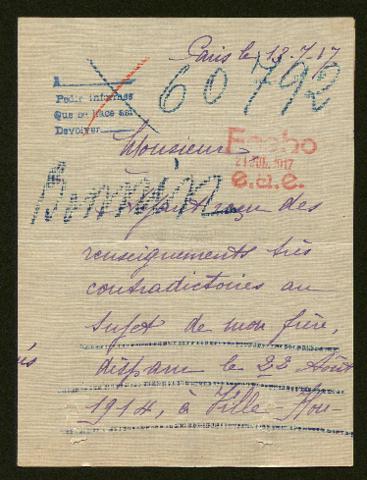 Paris le 13-7-17
A
60792
Pedir informes
Que se hace así
Devolver
Monsieur
Fecho
21 JUL. 1917
e.d.e.
Bonnin
Ayant reçu des
renseignements très
contradictoires au
sujet de mon frère,
disparu le 22 Août
1914, à Ville-Hou-
is